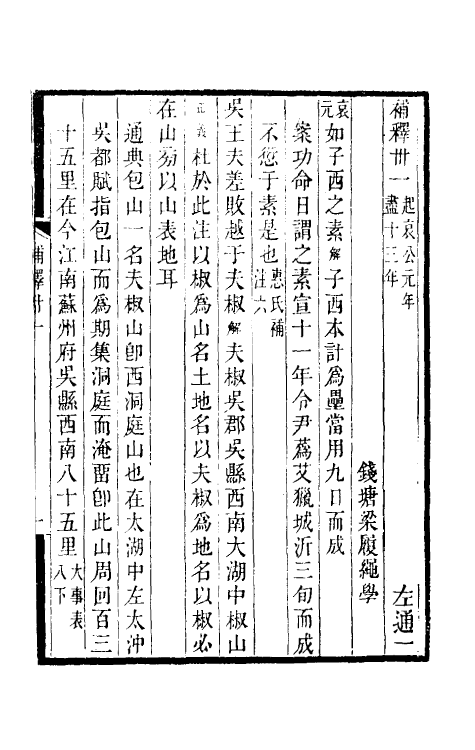 補釋卅一 起哀公元年盡十三年 左通一
錢塘梁履繩學
哀元 如子西之素 解 子西本計爲壘當用九日而成
案功命日謂之素宣十一年令尹蔿艾獵城沂三旬而成
不愆于素是也 惠氏補注六
吳王夫差敗越于夫椒 解 夫椒吳郡吳縣西南大湖中椒山
正義 杜於此注以椒爲山名土地名以夫椒爲地名以椒必
在山旁以山表地耳
通典包山一名夫椒山卽西洞庭山也在太湖中左太沖
吳都賦指包山而爲期集洞庭而淹畱卽此山周回百三
十五里在今江南蘇州府吳縣西南八十五里 大事表八下
補釋卅一 一